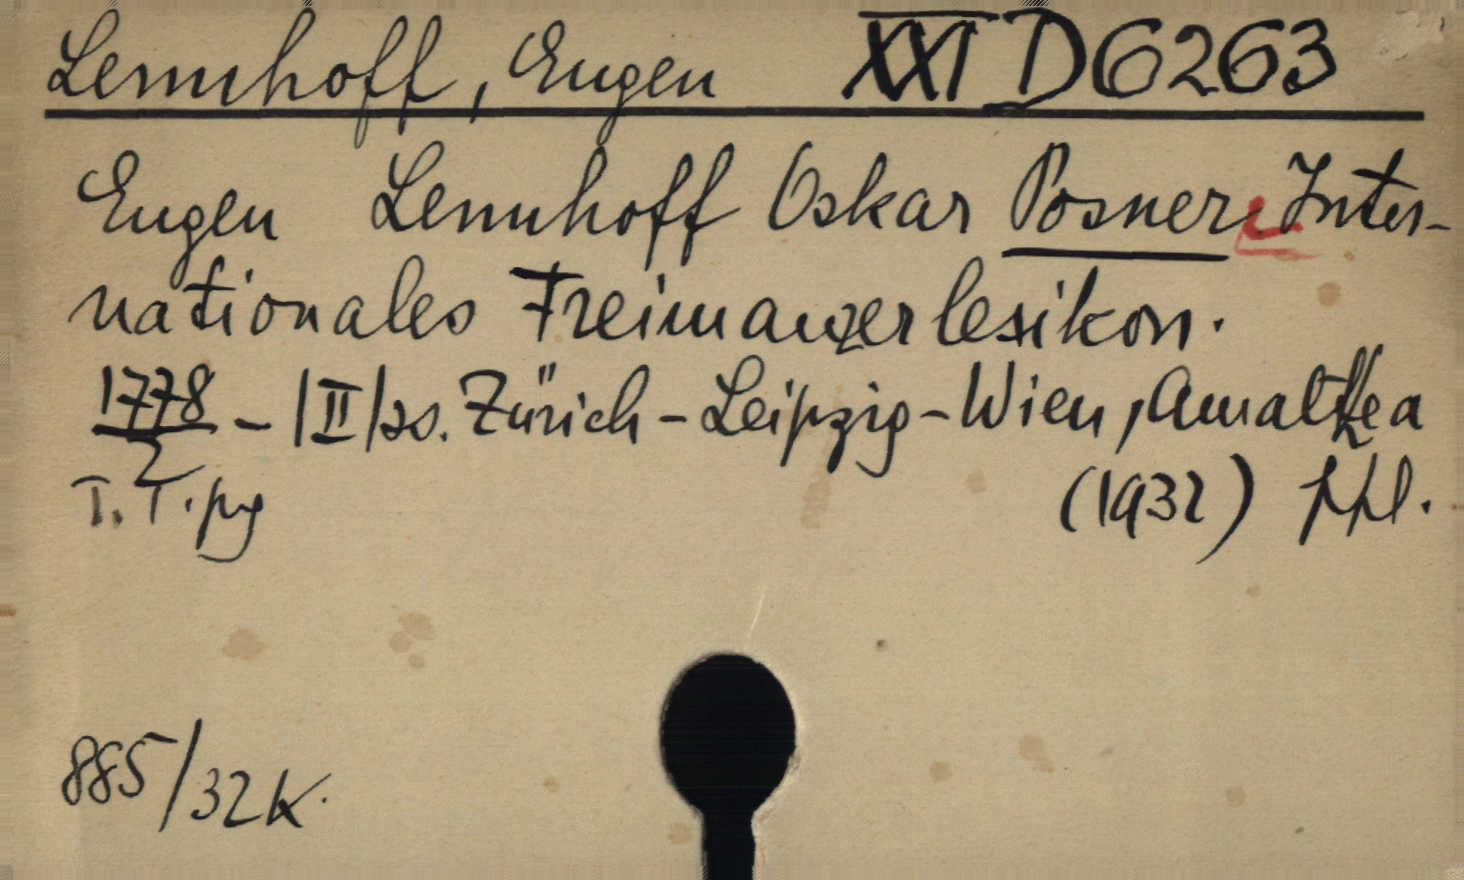 Lennhoff, Eugen XXI D6263
Eugen Lennhoff Oskar Posner: Inter-
nationales Freimaurerlexikon.
1778/2 - |II| ss. Zürich - Leipzig - Wien, Amalthea
T. T. pg (1932) ppl.
885/32 K.